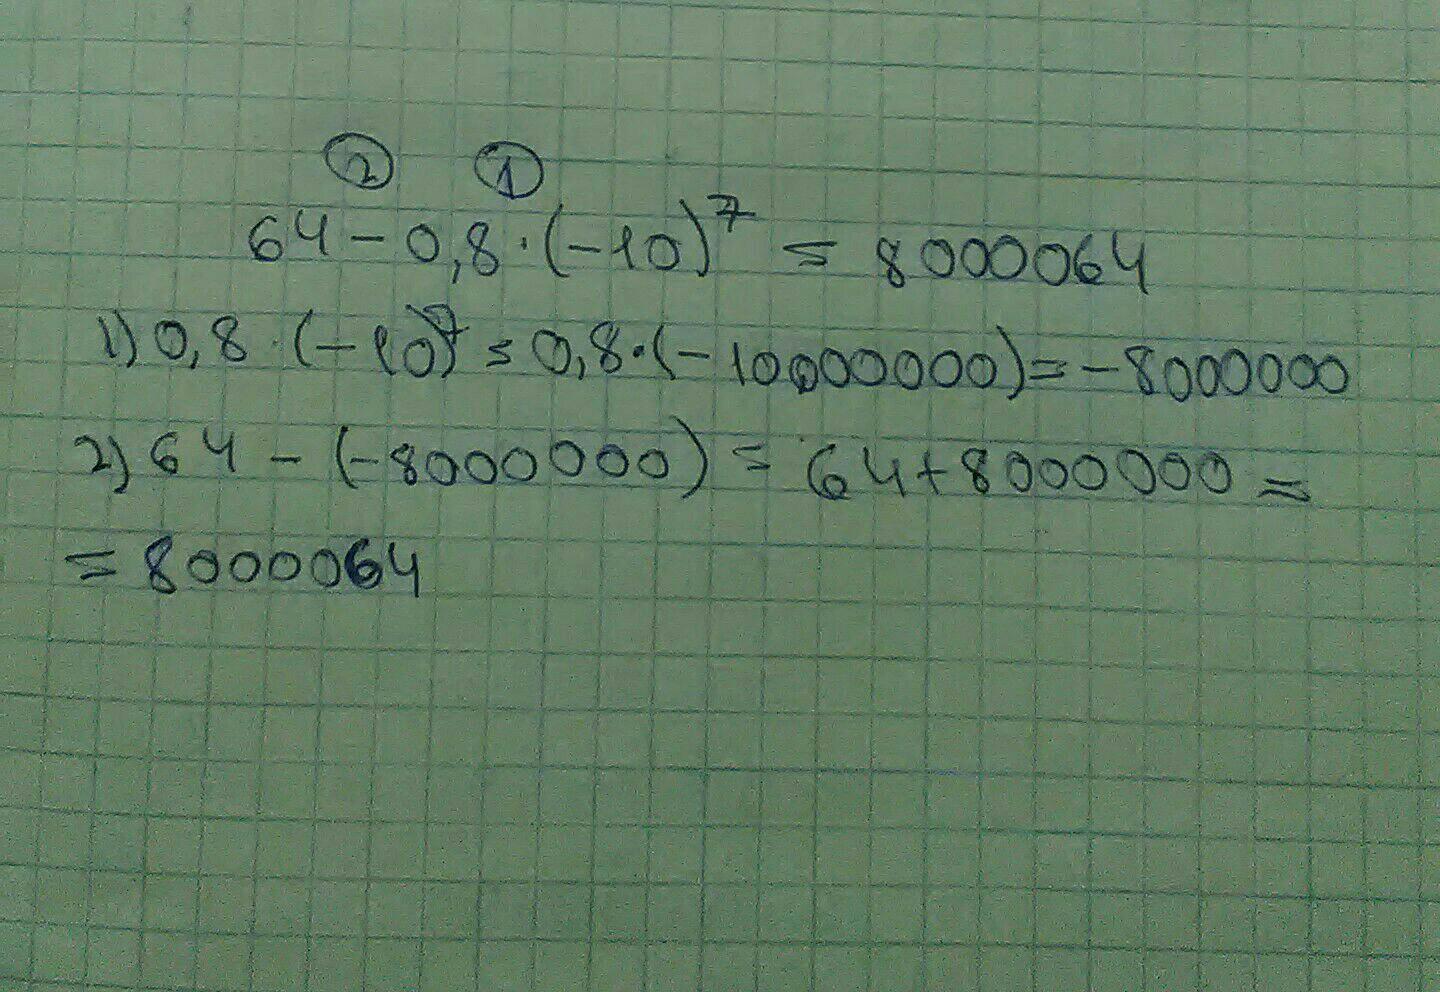 ② ①
64 - 0,8 · (-10)⁷ = 8000064
1) 0,8 · (-10)⁷ = 0,8 · (-10000000) = -8000000
2) 64 - (-8000000) = 64 + 8000000 =
= 8000064